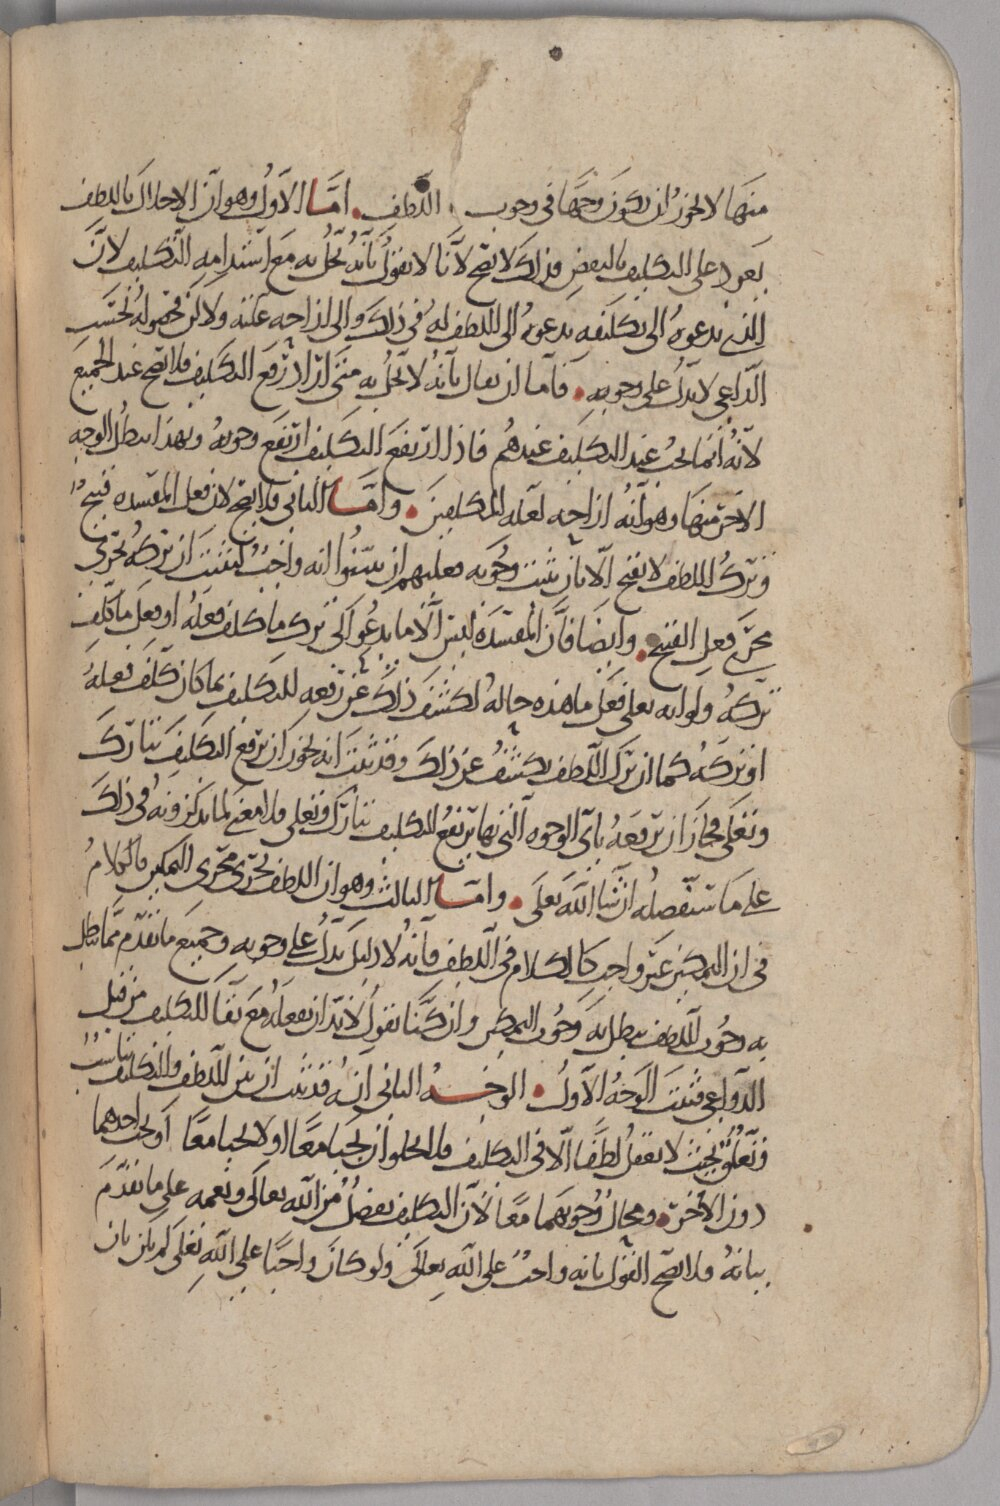 منها لا يجوز ان يكون وجها في وجوب اللطف • امّا الاول وهو ان الاخلال باللطف
يعود على التكليف بالنقض فذلك لا يصح لانا لا نقول بانه يخل به مع استدامه التكليف لان
الذي يدعوه الى تكليفه يدعوه الى اللطف له في ذلك والى ازاحه علته ولا كن حصوله بحسب
الداعي لا يدل على وجوبه • فاما ان يقال بانه لا يخل به متى اراد رفع التكليف فلا يصح عند الجميع
لانه انما يجب عند التكليف عندهم فاذا ارتفع التكليف ارتفع وجوبه وبهذا يبطل الوجه
الاخر منها وهو انه ازاحه لعله المكلفين • وامّا الثاني فلا يصح لان فعل المفسده قبيح
وترك اللطف لا يقبح الا بان يثبت وجوبه فعليهم ان يبينوا انه واجب ليثبت ان تركه يجري
مجرى فعل القبيح • وايضا فان المفسده ليس الا ما يدعوا الى ترك ما كلف فعله او فعل ما كلف
تركه ولو انه تعلى فعل ما هذه حاله لكشف ذلك عن رفعه للتكليف بما كان كلف فعله
او تركه كما ان ترك اللطف يكشف عن ذلك وقد ثبت انه يجوز ان يرفع التكليف تبارك
وتعلى فجاز ان يرفعه باي الوجوه التي بها يرتفع التكليف تبارك وتعلى فلا معنى لما يذكرونه في ذلك
على ما سنفصله ان شا الله تعلى • وامّا الثالث وهو ان اللطف يجري مجرى التمكين فالكلام
في ان التمكين غير واجب كالكلام في اللطف فانه لا دليل يدل على وجوبه وجميع ما تقدم مما يبطل
به وجوب اللطف يبطل به وجوب التمكين وان كنا نقول لا بد ان يفعله مع بقا التكليف من قبل
الدواعي فثبت الوجه الاول • الوجه الثاني انه قد ثبت ان بين اللطف والتكليف تناسبًا
وتعلق بحيث لا يعقل لطفًا الا في التكليف فلا يخلو ان يجبا معًا او لا يجبا معًا او يجب احدهما
دون الاخر • ومحال وجوبهما معًا لان التكليف تفضل من الله تعالى ونعمه على ما تقدم
بيانه فلا يصح القول بانه واجب على الله تعالى ولو كان واجبًا على الله تعلى لم يكن بان